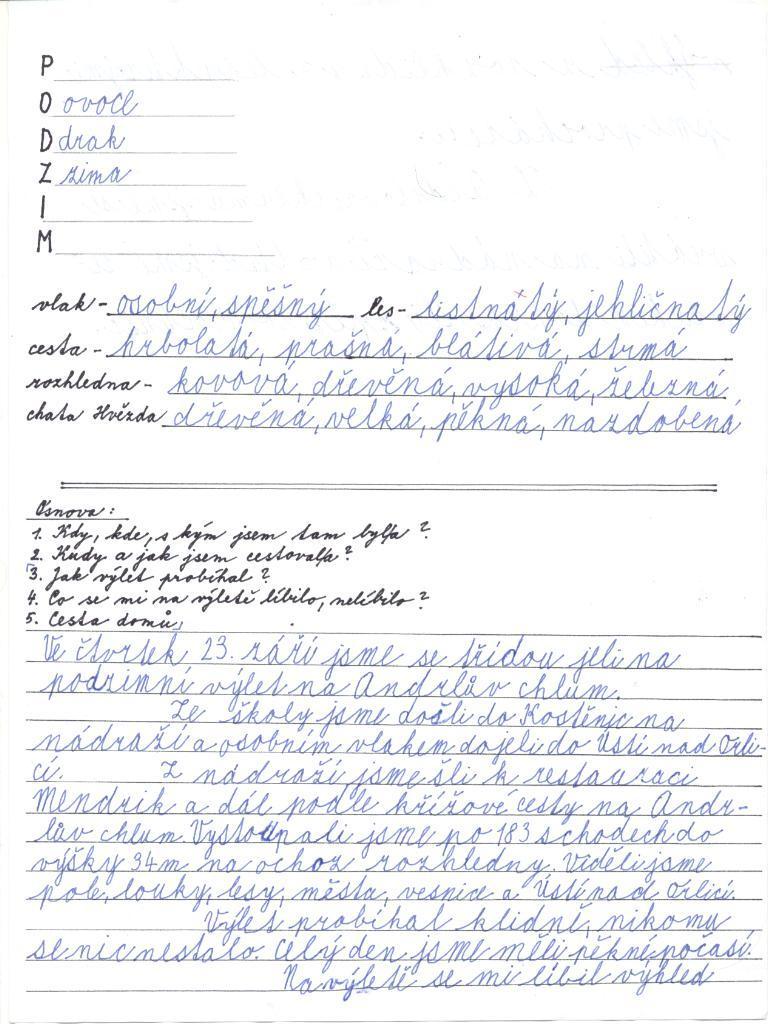 P
O ovoce
D drak
Z zima
I
M
vlak - osobní, spěšný les - listnatý, jehličnatý
cesta - hrbolatá, prašná, blátivá, strmá
rozhledna - kovová, dřevěná, vysoká, železná
chata Hvězda dřevěná, velká, pěkná, nazdobená
Osnova:
1. Kdy, kde, s kým jsem tam byl/a?
2. Kudy a jak jsem cestoval/a?
3. Jak výlet probíhal?
4. Co se mi na výletě líbilo, nelíbilo?
5. Cesta domů.
Ve čtvrtek 23. září jsme se třídou jeli na
podzimní výlet na Andrlův chlum.
Ze školy jsme došli do Kostěnic na
nádraží a osobním vlakem dojeli do Ústí nad Orli-
cí. Z nádraží jsme šli k restauraci
Mendrik a dál podle křížové cesty na Andr-
lův chlum. Vystoupali jsme po 183 schodech do
výšky 34 m na ochoz rozhledny. Viděli jsme
pole, louky, lesy, města, vesnice a Ústí nad Orlicí.
Výlet probíhal klidně, nikomu
se nic nestalo. Celý den jsme měli pěkné počasí.
Na výletě se mi líbil výhled